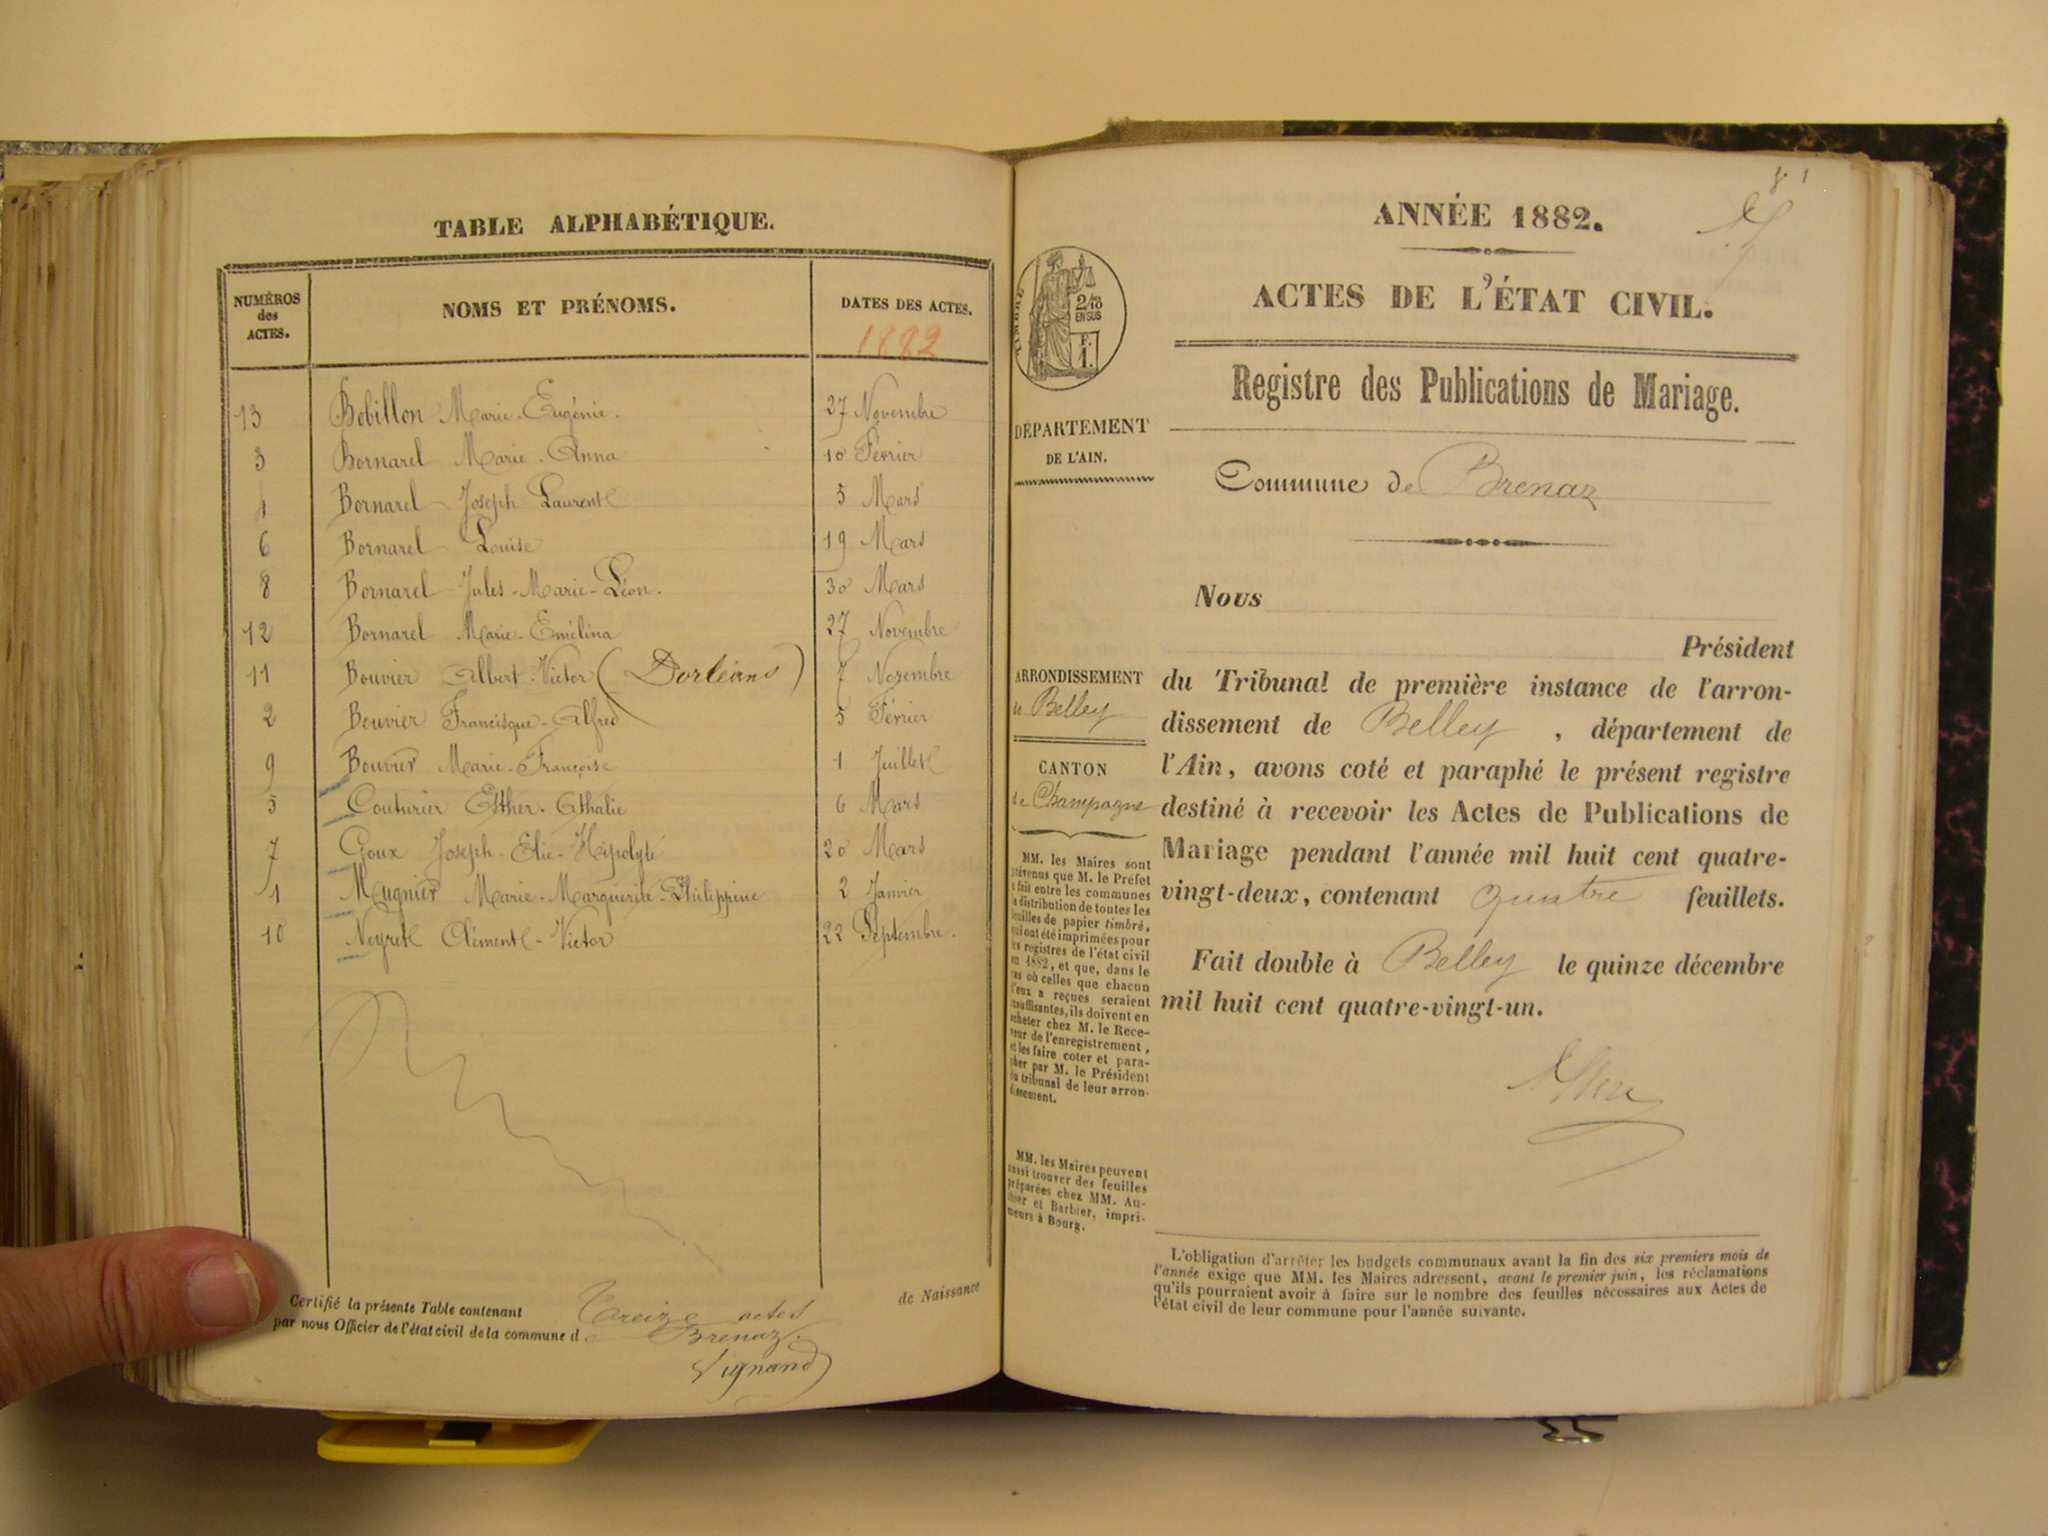 TABLE ALPHABÉTIQUE.
NUMÉROS des ACTES. NOMS ET PRÉNOMS. DATES DES ACTES.
1882
13 Bobillon Marie-Eugénie. 27 Novembre
3 Bornarel Marie-Anna 10 Février
4 Bornarel Joseph Laurent 5 Mars
6 Bornarel Louise 19 Mars
8 Bornarel Jules-Marie-Léon. 30 Mars
12 Bornarel Marie-Emélina 27 Novembre
11 Bouvier Albert-Victor (Dorléans) 7 Novembre
2 Bouvier Francisque-Alfred 5 Février
9 Bouvier Marie-Françoise 1 Juillet
5 Couturier Esther-Athalie 6 Mars
7 Goux Joseph-Elie-Hipolyte 20 Mars
1 Mugnier Marie-Marguerite-Philippine 2 Janvier
10 Neyret Clément-Victor 22 Septembre.
Certifié la présente Table contenant Treize actes de Naissance
par nous Officier de l'état civil de la commune de Brenaz.
Vignand
81
ANNÉE 1882.
ACTES DE L'ÉTAT CIVIL.
TIMBRE
2/10
EN SUS
F.
1.
Registre des Publications de Mariage.
DÉPARTEMENT
DE L'AIN.
Commune de Brenaz
Nous
Président
ARRONDISSEMENT
de Belley
CANTON
de Champagne
du Tribunal de première instance de l'arron-
dissement de Belley, département de
l'Ain, avons coté et paraphé le présent registre
destiné à recevoir les Actes de Publications de
Mariage pendant l'année mil huit cent quatre-
vingt-deux, contenant quatre feuillets.
Fait double à Belley le quinze décembre
mil huit cent quatre-vingt-un.
MM. les Maires sont
prévenus que M. le Préfet
a fait entre les communes
la distribution de toutes les
feuilles de papier timbré,
qui ont été imprimées pour
les registres de l'état civil
en 1882, et que, dans le
cas où celles que chacun
d'eux a reçues seraient
insuffisantes, ils doivent en
acheter chez M. le Rece-
veur de l'enregistrement,
et les faire coter et para-
pher par M. le Président
du tribunal de leur arron-
dissement.
MM. les Maires peuvent
aussi trouver des feuilles
préparées chez MM. Au-
thier et Barbier, impri-
meurs à Bourg.
L'obligation d'arrêter les budgets communaux avant la fin des six premiers mois de
l'année exige que MM. les Maires adressent, avant le premier juin, les réclamations
qu'ils pourraient avoir à faire sur le nombre des feuilles nécessaires aux Actes de
l'état civil de leur commune pour l'année suivante.